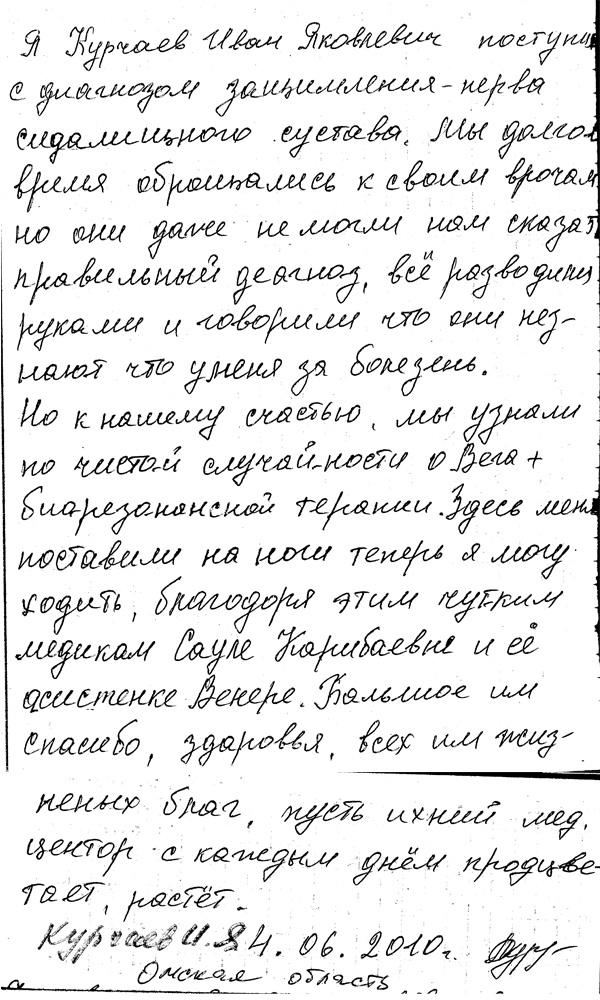 Я Курчаев Иван Яковлевич поступи
с диагнозом защимления-нерва
сидалищного сустава. Мы долгое
время оброщались к своим врочам
но они даже не могли нам сказат
правильный деагноз, всё разводили
руками и говорили что они нез-
нают что уменя за болезень.
Но к нашему счастью, мы узнали
по чистой случай-ности о Вега +
биорезонансной терапии. Здесь меня
поставили на ноги теперь я могу
ходить, благодоря этим чутким
медикам Сауле Карибаевне и её
асистенке Венере. Большое им
спасибо, здоровья, всех им жиз-
неных благ, пусть ихний мед.
центор с каждым днём процве-
тает, растёт.
Курчаев И.Я 4. 06. 2010г.
Омская область